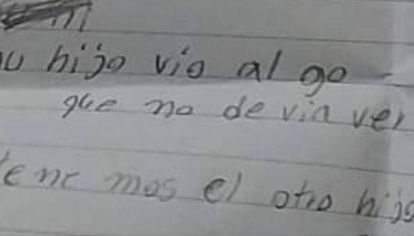 u hijo vio al go
que no de via ver
enc mos el otro hijo